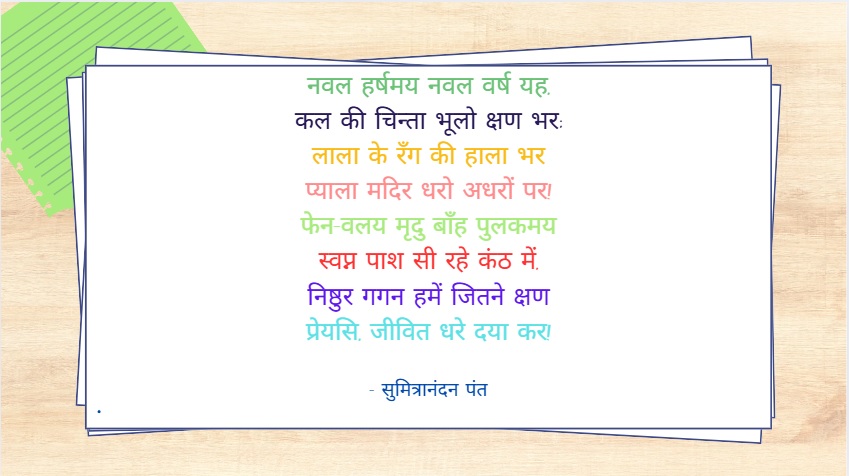 नवल हर्षमय नवल वर्ष यह,
कल की चिन्ता भूलो क्षण भर;
लाला के रँग की हाला भर
प्याला मदिर धरो अधरों पर!
फेन-वलय मृदु बाँह पुलकमय
स्वप्न पाश सी रहे कंठ में,
निष्ठुर गगन हमें जितने क्षण
प्रेयसि, जीवित धरे दया कर!
- सुमित्रानंदन पंत
.